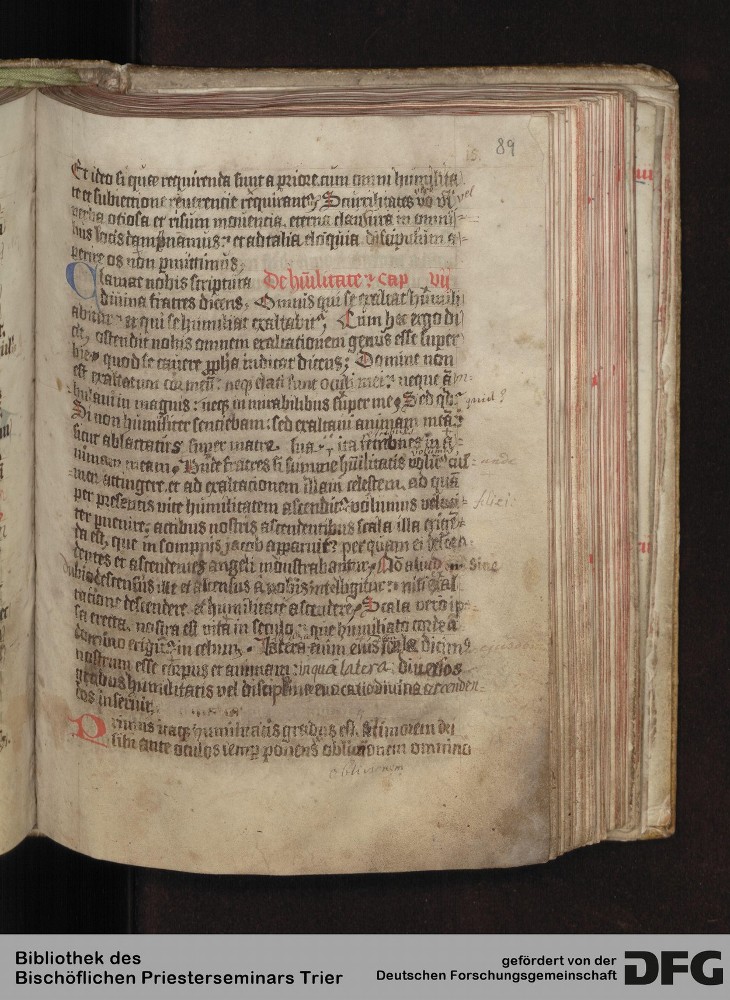 89
15.
Et ideo si qua requirenda sunt a priore cum omni humilita
te et subiectione reuerentie requirant. Scurrilitates vo vl
vel
verba ociosa et risum mouencia. eterna clausura in omni
bus locis dampnamus: et ad talia eloquia discipulum a
perire os non pmittimus.
Clamat nobis scriptura De hūilitate: Cap vij
diuina fratres dicens. Omnis qui se exaltat humili
abitur et qui se humiliat exaltabit. Cum hec ergo di
cit, ostendit nobis omnem exaltationem genus esse super
bie, quod se cauere ppha indicat dicens; Domine non
est exaltatum cor meū: neq; elati sunt oculi mei: neque ām-
bulaui in magnis: neq; in mirabilibus super me. Sed qd quid?
Si non humiliter sentiebam: sed exaltaui animam meā:
sicut ablactatus super matre sua: ita retribues in a
nimam meam. Unde fratres si summe hūilitatis volum cul unde
men attingere, et ad exaltacionem illam celestem, ad quā
per presentis vite humilitatem ascendit: volumus veloci
ter puenire; actibus nostris ascendentibus scala illa erigē
da est, que in sompnis iacob apparuit: per quam ei descen
dentes et ascendentes angeli monstrabantur. Nō aliud sine
dubio descensus ille et ascensus a nobis intelligitur: nisi exal
tacione descendere et humilitate ascendere. Scala vero ip
sa erecta, nostra est vita in seculo: que humiliato corde a
domino erigit in celum. Latera enim eius scale dicim
nostrum esse corpus et animam: in qua latera diuersos
gradus humilitatis vel discipline euocatio diuina ascenden-
dos inseruit.
Primus itaq; humilitatis gradus est. si timorem dei
sibi ante oculos semp ponens obliuionem omnino
oblivionem
Bibliothek des
Bischöflichen Priesterseminars Trier
gefördert von der
Deutschen Forschungsgemeinschaft
DFG